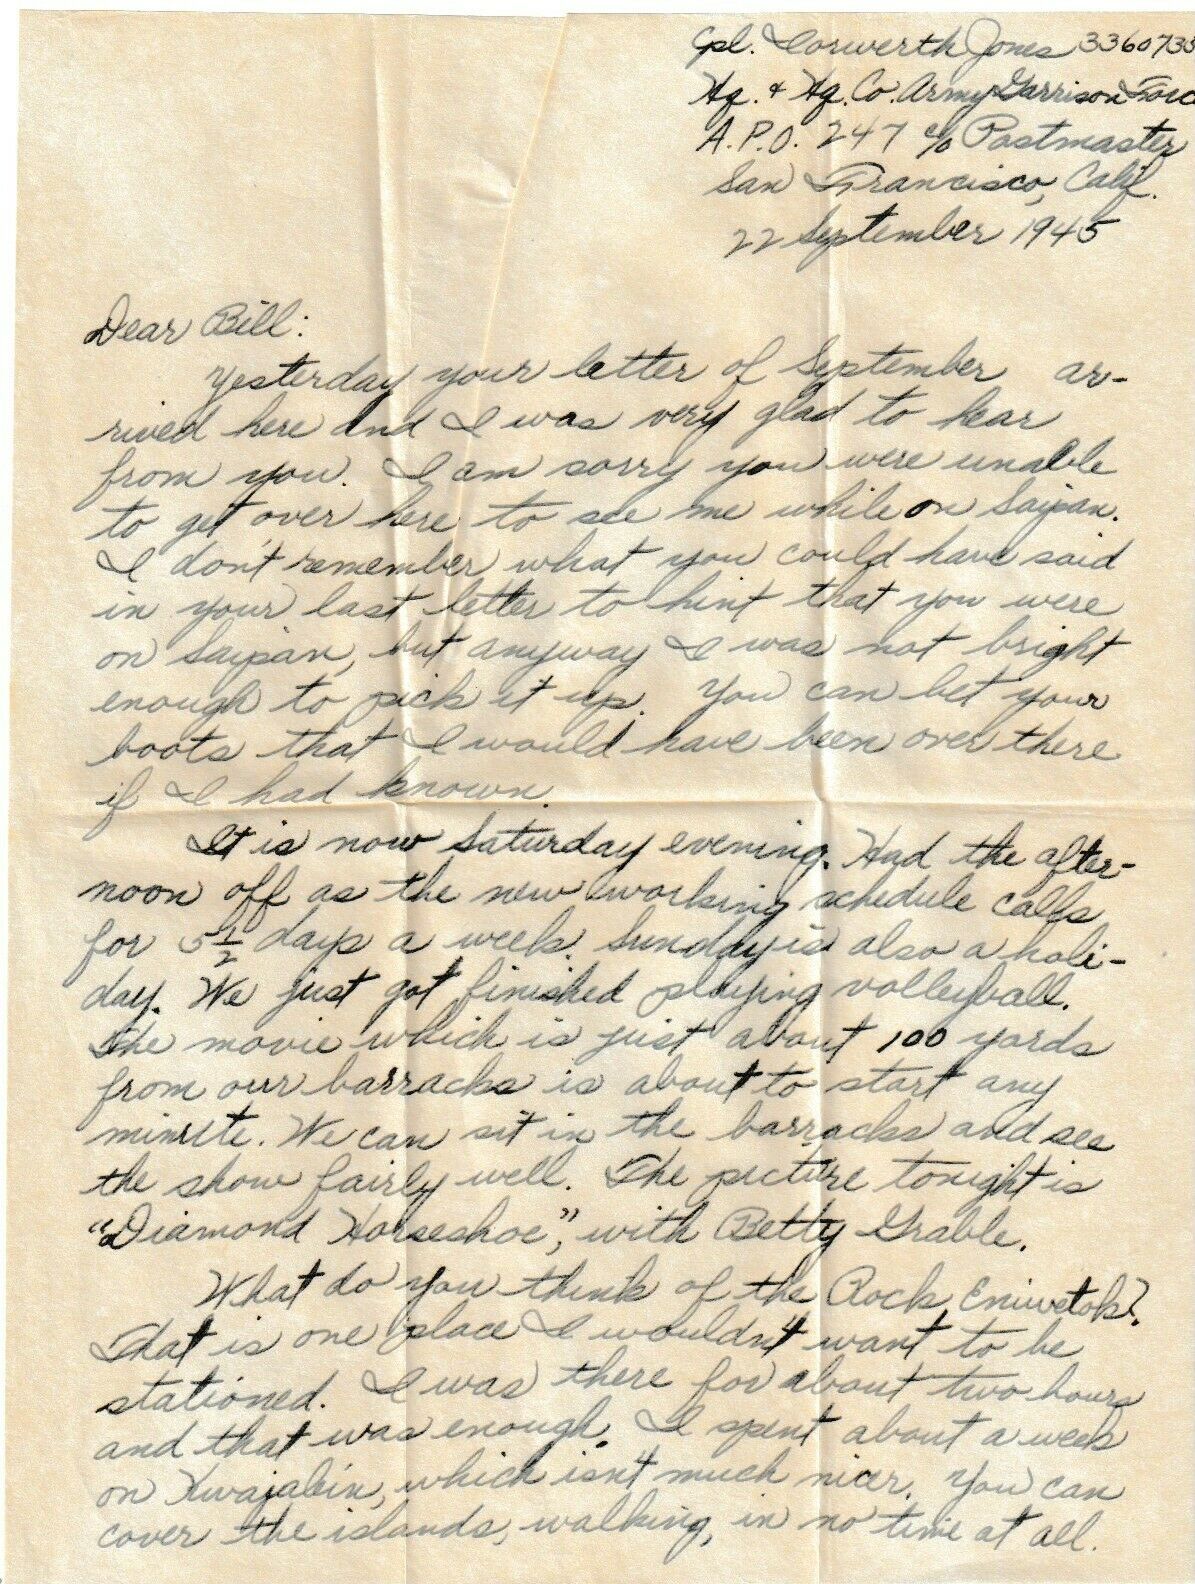 Cpl. Iorwerth Jones 3360733
Hq. & Hq. Co. Army Garrison Forc
A.P.O. 247 c/o Postmaster
San Francisco, Calif.
22 September 1945
Dear Bill:
Yesterday your letter of September ar-
rived here and I was very glad to hear
from you. I am sorry you were unable
to get over here to see me while on Saipan.
I don't remember what you could have said
in your last letter to hint that you were
on Saipan, but anyway I was not bright
enough to pick it up. You can bet your
boots that I would have been over there
if I had known.
It is now Saturday evening. Had the after-
noon off as the new working schedule calls
for 5 1/2 days a week. Sunday is also a holi-
day. We just got finished playing volleyball.
The movie which is just about 100 yards
from our barracks is about to start any
minute. We can sit in the barracks and see
the show fairly well. The picture tonight is
"Diamond Horseshoe", with Betty Grable.
What do you think of the Rock, Eniwetok?
That is one place I wouldn't want to be
stationed. I was there for about two hours
and that was enough. I spent about a week
on Kwajalein, which isn't much nicer. You can
cover the islands, walking, in no time at all.